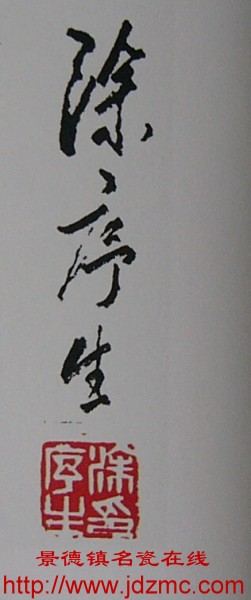 涂序生
涂印
序生
景德镇名瓷在线
http://www.jdzmc.com